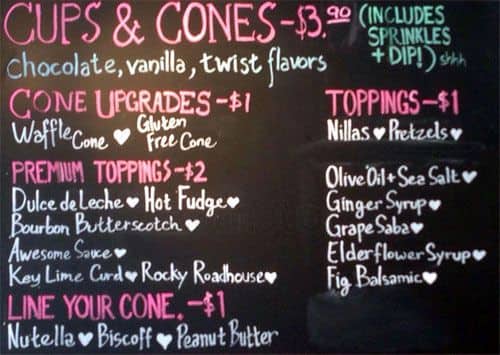 CUPS & CONES - $3.90 (INCLUDES SPRINKLES + DIP!) shhh
Chocolate, vanilla, twist flavors
CONE UPGRADES - $1
Waffle Cone ♥ Gluten Free Cone
TOPPINGS - $1
Nillas ♥ Pretzels ♥
PREMIUM TOPPINGS - $2
Dulce de Leche ♥ Hot Fudge ♥
Bourbon Butterscotch ♥
Awesome Sauce ♥
Key Lime Curd ♥ Rocky Roadhouse ♥
Olive Oil + Sea Salt ♥
Ginger Syrup ♥
Grape Saba ♥
Elderflower Syrup ♥
Fig Balsamic ♥
LINE YOUR CONE. - $1
Nutella ♥ Biscoff ♥ Peanut Butter